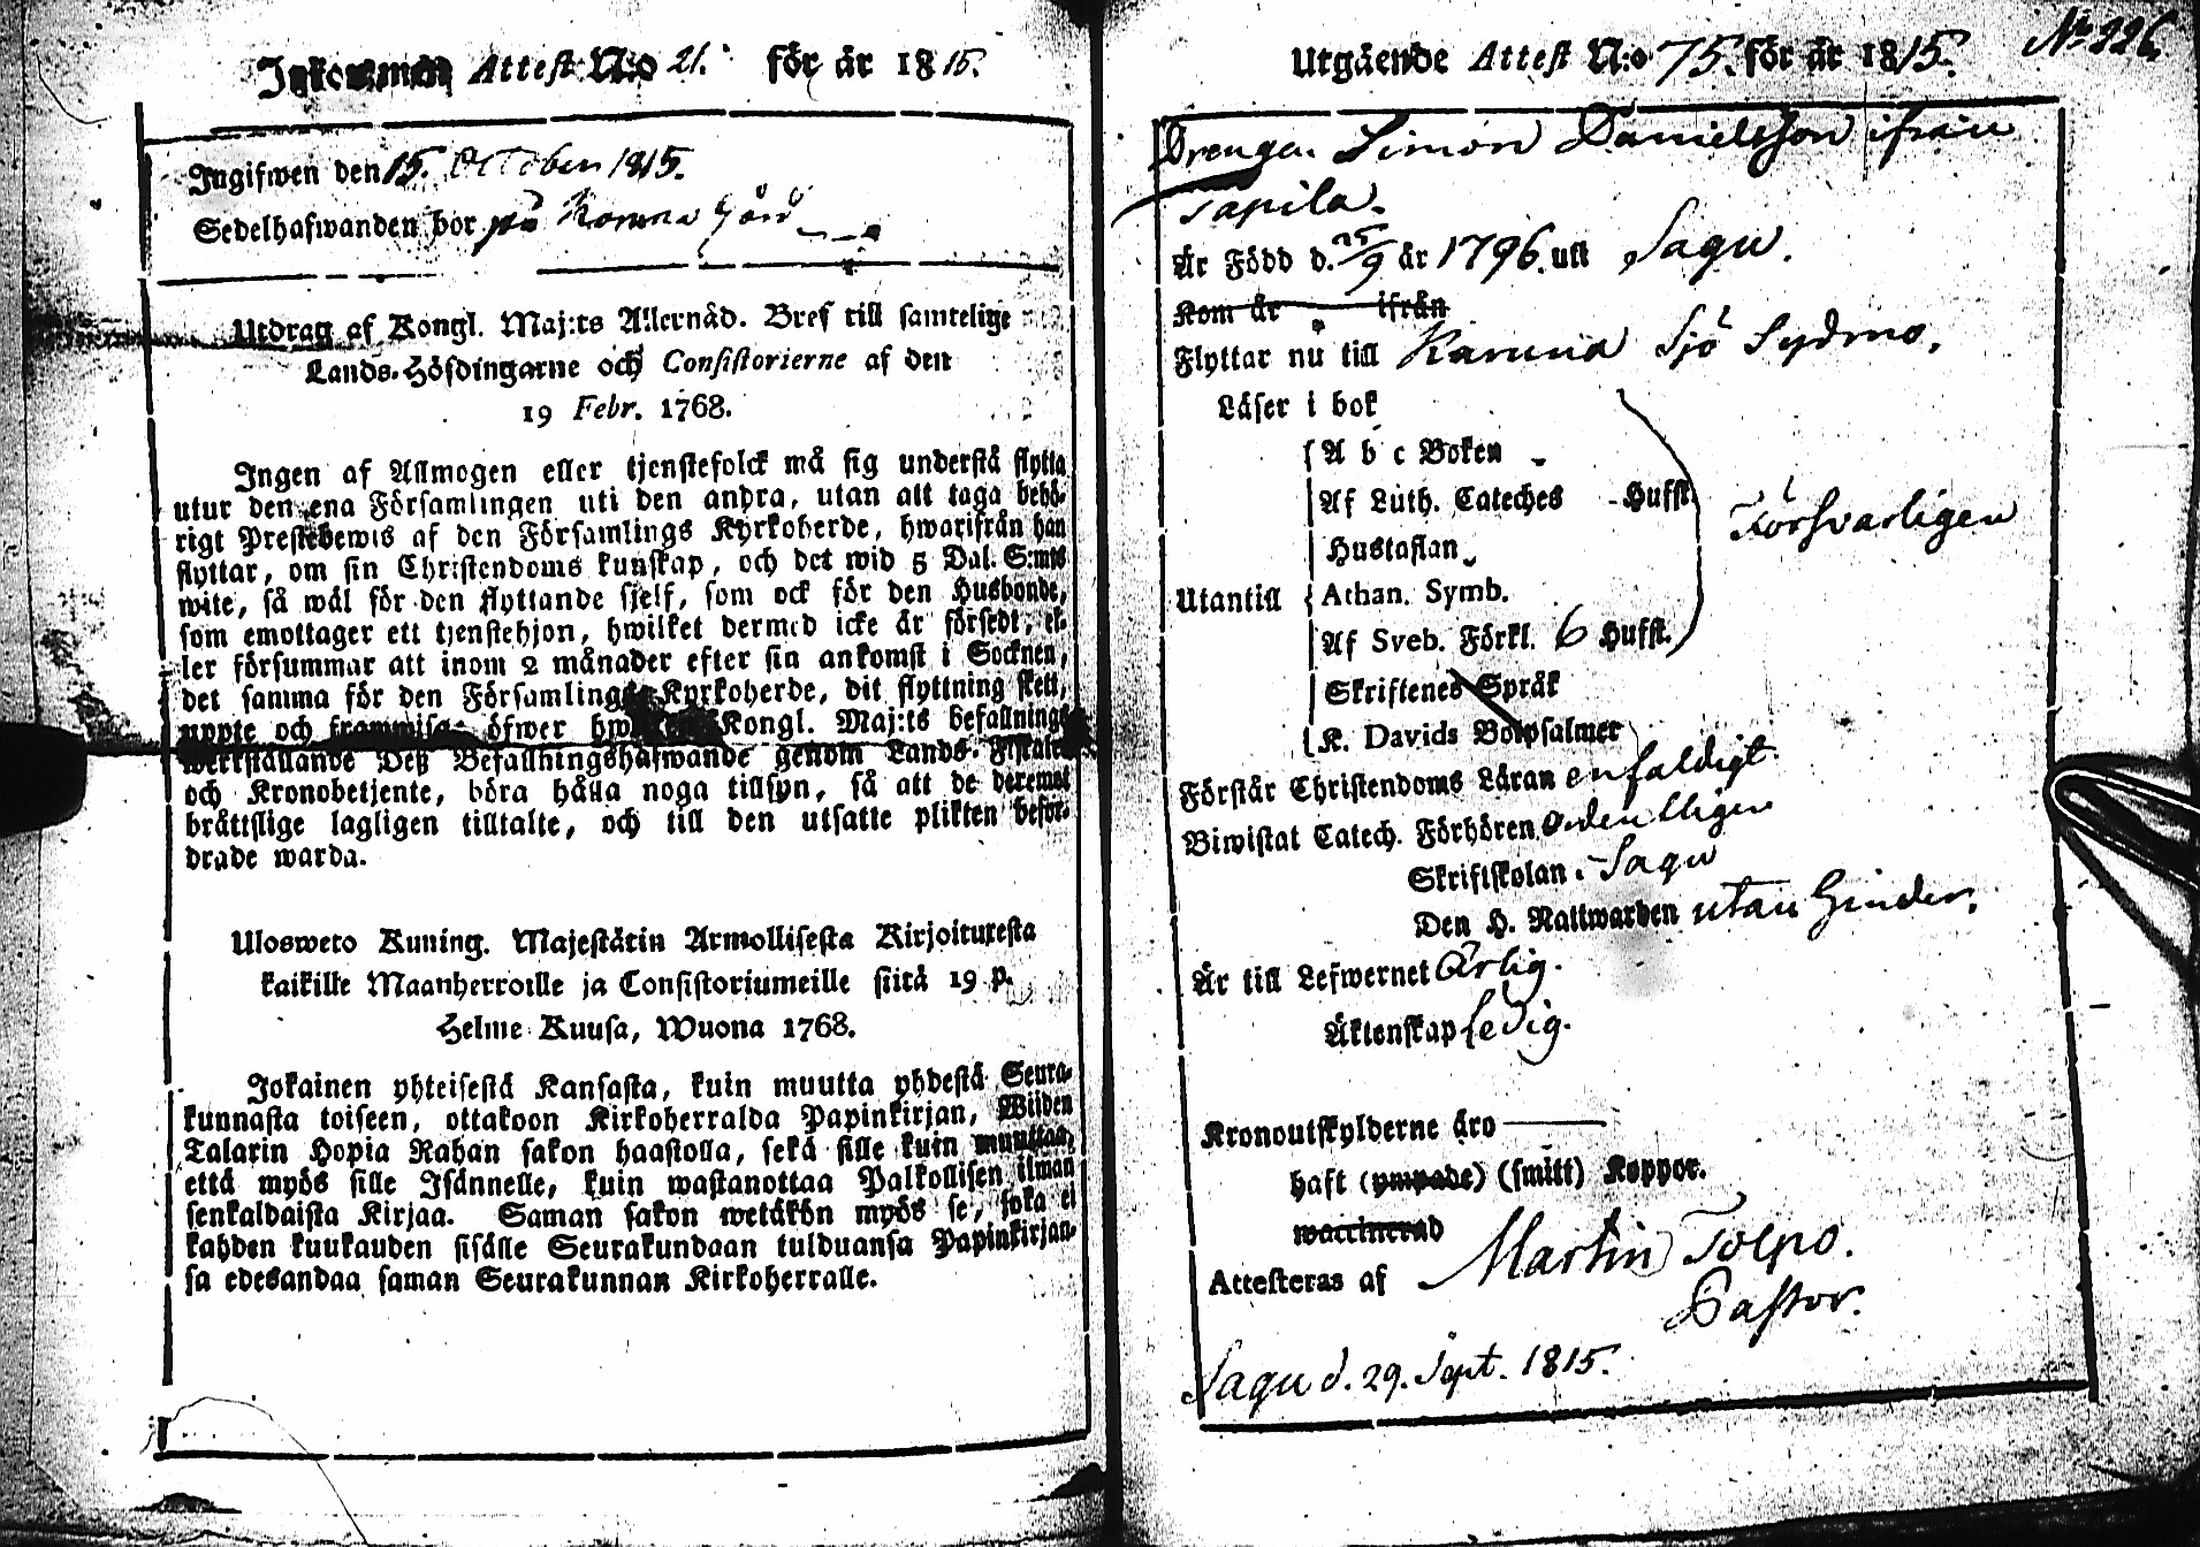 Inkommen Attest N:o 21. för år 1815.
Ingifwen den 15. October 1815.
Sedelhafwanden bor på Karuna Gård
Utdrag af Kongl. Maj:ts Allernåd. Bref till samtelige
Lands-Höfdingarne och Consistorierne af den
19 Febr. 1768.
Ingen af Allmogen eller tjenstefolck må sig understå flytta
utur den ena Församlingen uti den andra, utan att taga behö-
rigt Prestebewis af den Församlings Kyrkoherde, hwarifrån han
flyttar, om sin Christendoms kunskap, och det wid 5 Dal. S:mts
wite, så wäl för den flyttande sjelf, som ock för den Husbonde,
som emottager ett tjenstehjon, hwilket dermed icke är försedt, el-
ler försummar att inom 2 månader efter sin ankomst i Socknen,
det samma för den Församlings Kyrkoherde, dit flyttning skett,
uppte och framwisa; öfwer Kongl. Maj:ts befallnings
werkställande Deß Befallningshafwande genom Lands-Fiskaler
och Kronobetjente, böra hålla noga tillsyn, så att de deremot
bråttslige lagligen tilltalte, och till den utsatte plikten befor-
drade warda.
Ulosweto Kuning. Majestätin Armollisesta Kirjoituresta
kaikille Maanherroille ja Consistoriumeille siitä 19 p.
Helme Kuusa, Wuona 1768.
Jokainen yhteisestä Kansasta, kuin muutta yhdestä Seura-
kunnasta toiseen, ottakoon Kirkoherralda Papinkirjan, Wiiden
Talarin Hopia Rahan sakon haastolla, sekä sille kuin muuttaa,
että myös sille Isännelle, kuin wastanottaa Palkollisen ilman
senkaldaista Kirjaa. Saman sakon wetäkön myös se, joka ei
kahden kuukauden sisälle Seurakundaan tulduansa Papinkirjan-
sa edesandaa saman Seurakunnan Kirkoherralle.
Utgående Attest N:o 75. för år 1815. No 226.
Drengen Simon Danielsson ifrån
Tapila.
Är Född d. 25/9 år 1796. uti Sagu.
Kom år ifrån
Flyttar nu till Karuna Sjö Sydmo.
Läser i bok
A b c Boken
Af Luth. Cateches Hufst.
Hustaflan
Försvarligen
Utantill Athan. Symb.
Af Sveb. Förkl. 6 Hufst.
Skriftenes Språk
K. Davids Botpsalmer
Förstår Christendoms Läran enfaldigt.
Biwistat Catech. Förhören Ordentligen
Skriftskolan. Sagu
Den H. Nattwarden utan Hinder.
Är till Lefwernet Ärlig.
Äktenskap ledig.
Kronoutskylderne äro
haft (ympade) (smitt) Koppor.
waccinerad
Attesteras af Martin Tolpo.
Pastor.
Sagu d. 29. Sept. 1815.